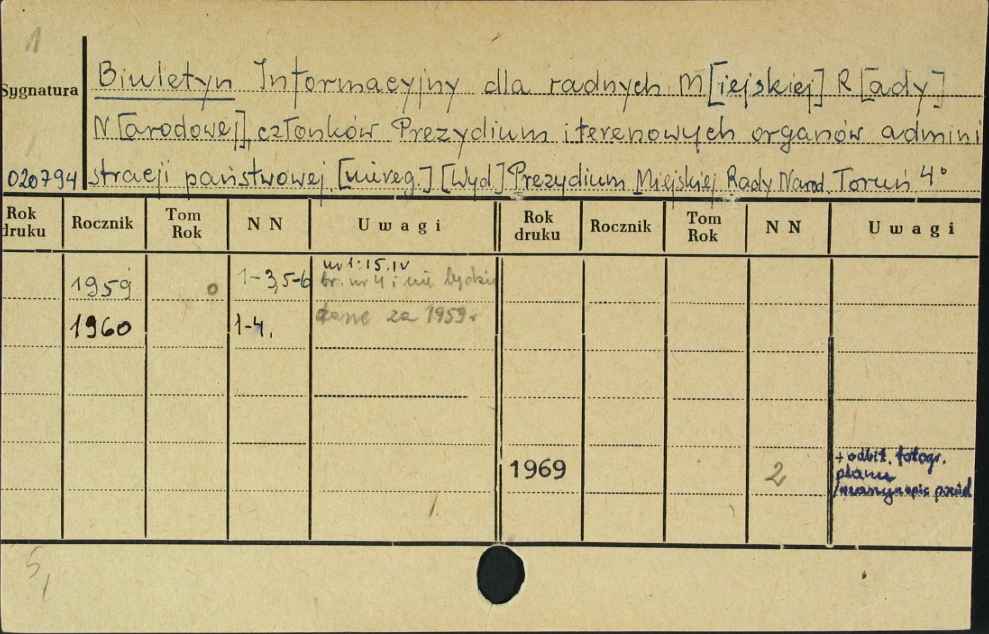 1
Sygnatura
Biuletyn Informacyjny dla radnych M[iejskiej] R[ady]
N[arodowej], członków Prezydium i terenowych organów admini
020794 stracji państwowej. [niereg.] [Wyd] Prezydium Miejskiej Rady Narod. Toruń 4°
Rok druku Rocznik Tom Rok NN Uwagi Rok druku Rocznik Tom Rok NN Uwagi
nr 1: 15.IV
1959 0 1-3,5-6 br. nr 4 i nie będzie
1960 1-4. dane za 1959 r
1969 2 + odbit. fotogr.
planu
/maszynopis
5,